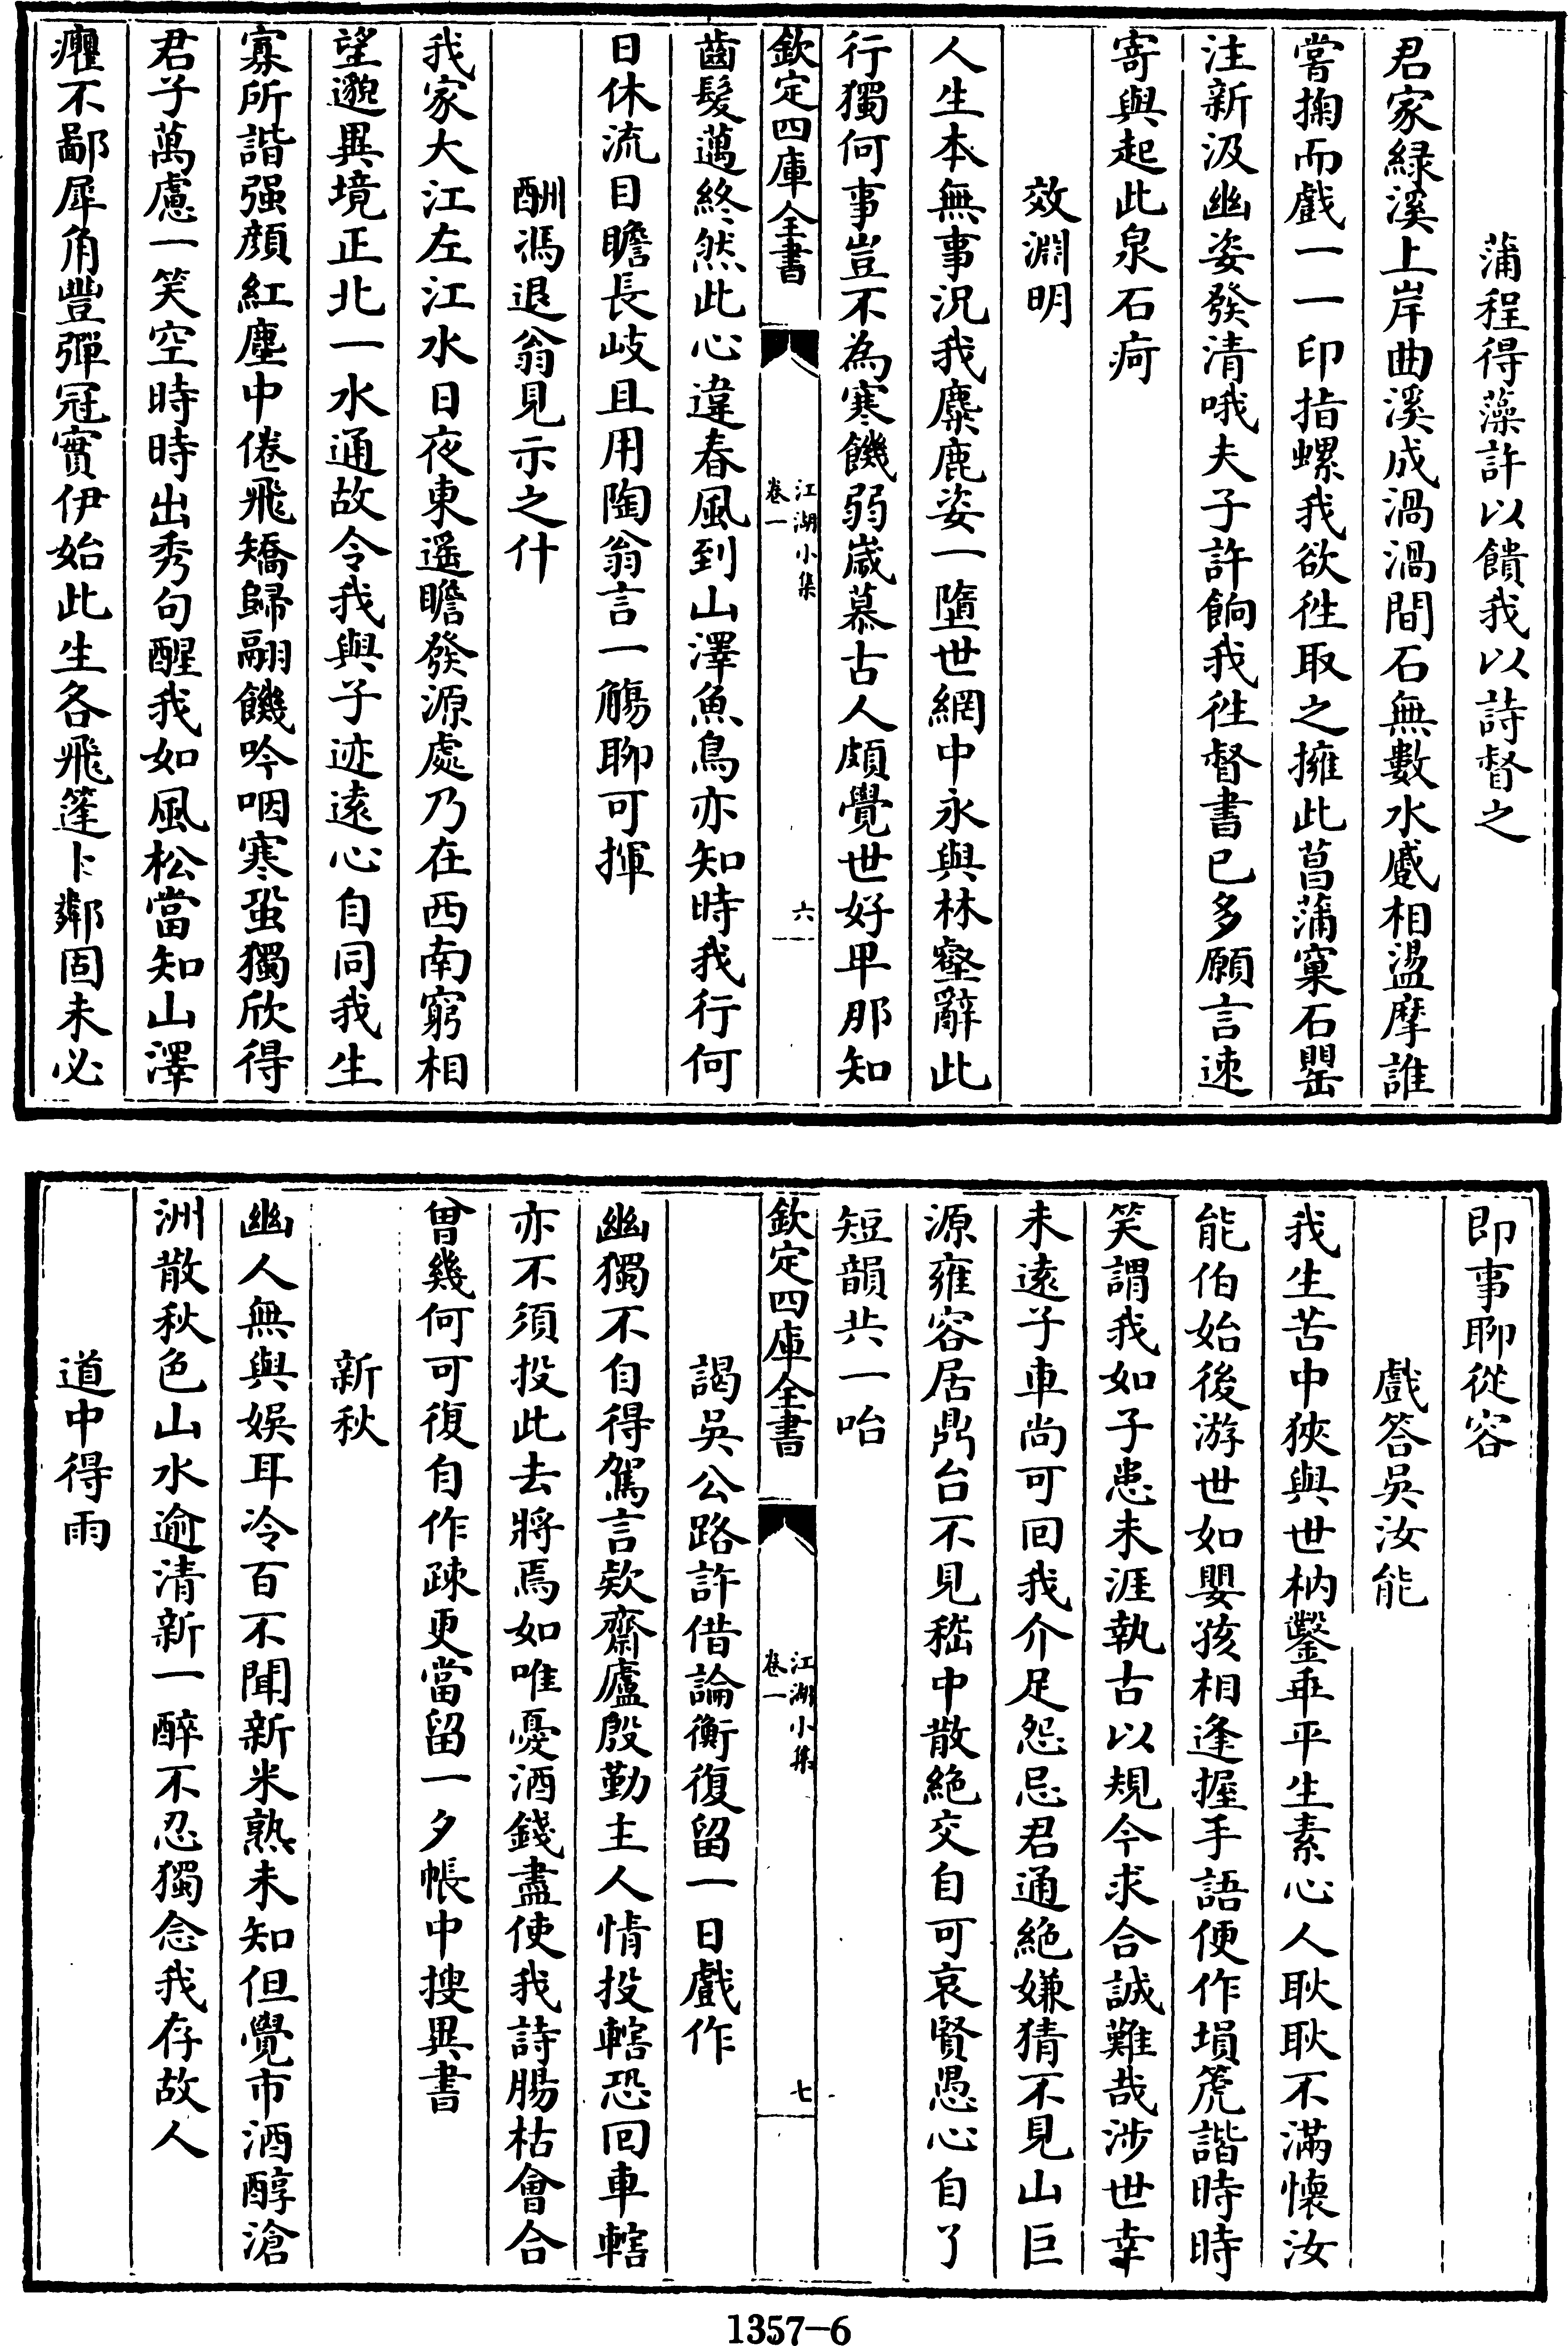 蒲程得藻許以饋我以詩督之
君家緑溪上岸曲溪成渦渦間石無數水蹙相盪摩誰
嘗掬而戲一一印指螺我欲徃取之擁此菖蒲窠石罌
注新汲幽姿發清哦夫子許餉我徃督書已多願言速
寄與起此泉石疴
效淵明
人生本無事況我麋鹿姿一墮世網中永與林壑辭此
行獨何事豈不為寒饑弱嵗慕古人頗覺世好卑那知
欽定四庫全書
江湖小集
卷一
六
齒髮邁終然此心違春風到山澤魚鳥亦知時我行何
日休流目瞻長岐且用陶翁言一觴聊可揮
酬馮退翁見示之什
我家大江左江水日夜東遥瞻發源處乃在西南窮相
望邈異境正北一水通故令我與子迹逺心自同我生
寡所諧强顔紅塵中倦飛矯歸翮饑吟咽寒蛩獨欣得
君子萬慮一笑空時時出秀句醒我如風松當知山澤
癯不鄙犀角豐彈冠實伊始此生各飛篷卜鄰固未必
即事聊從容
戲答吳汝能
我生苦中狹與世枘鑿乖平生素心人耿耿不滿懷汝
能伯始後游世如嬰孩相逢握手語便作塤箎諧時時
笑謂我如子患未涯執古以規今求合誠難哉涉世幸
未逺子車尚可回我介足怨忌君通絶嫌猜不見山巨
源雍容居鼎台不見嵇中散絶交自可哀賢愚心自了
短韻共一咍
欽定四庫全書
江湖小集
卷一
七
謁吳公路許借論衡復留一日戲作
幽獨不自得駕言欵齋廬殷勤主人情投轄恐回車轄
亦不須投此去將焉如唯憂酒錢盡使我詩腸枯會合
曾幾何可復自作疎更當留一夕帳中搜異書
新秋
幽人無與娱耳冷百不聞新米熟未知但覺市酒醇滄
洲散秋色山水逾清新一醉不忍獨念我存故人
道中得雨
1357-6